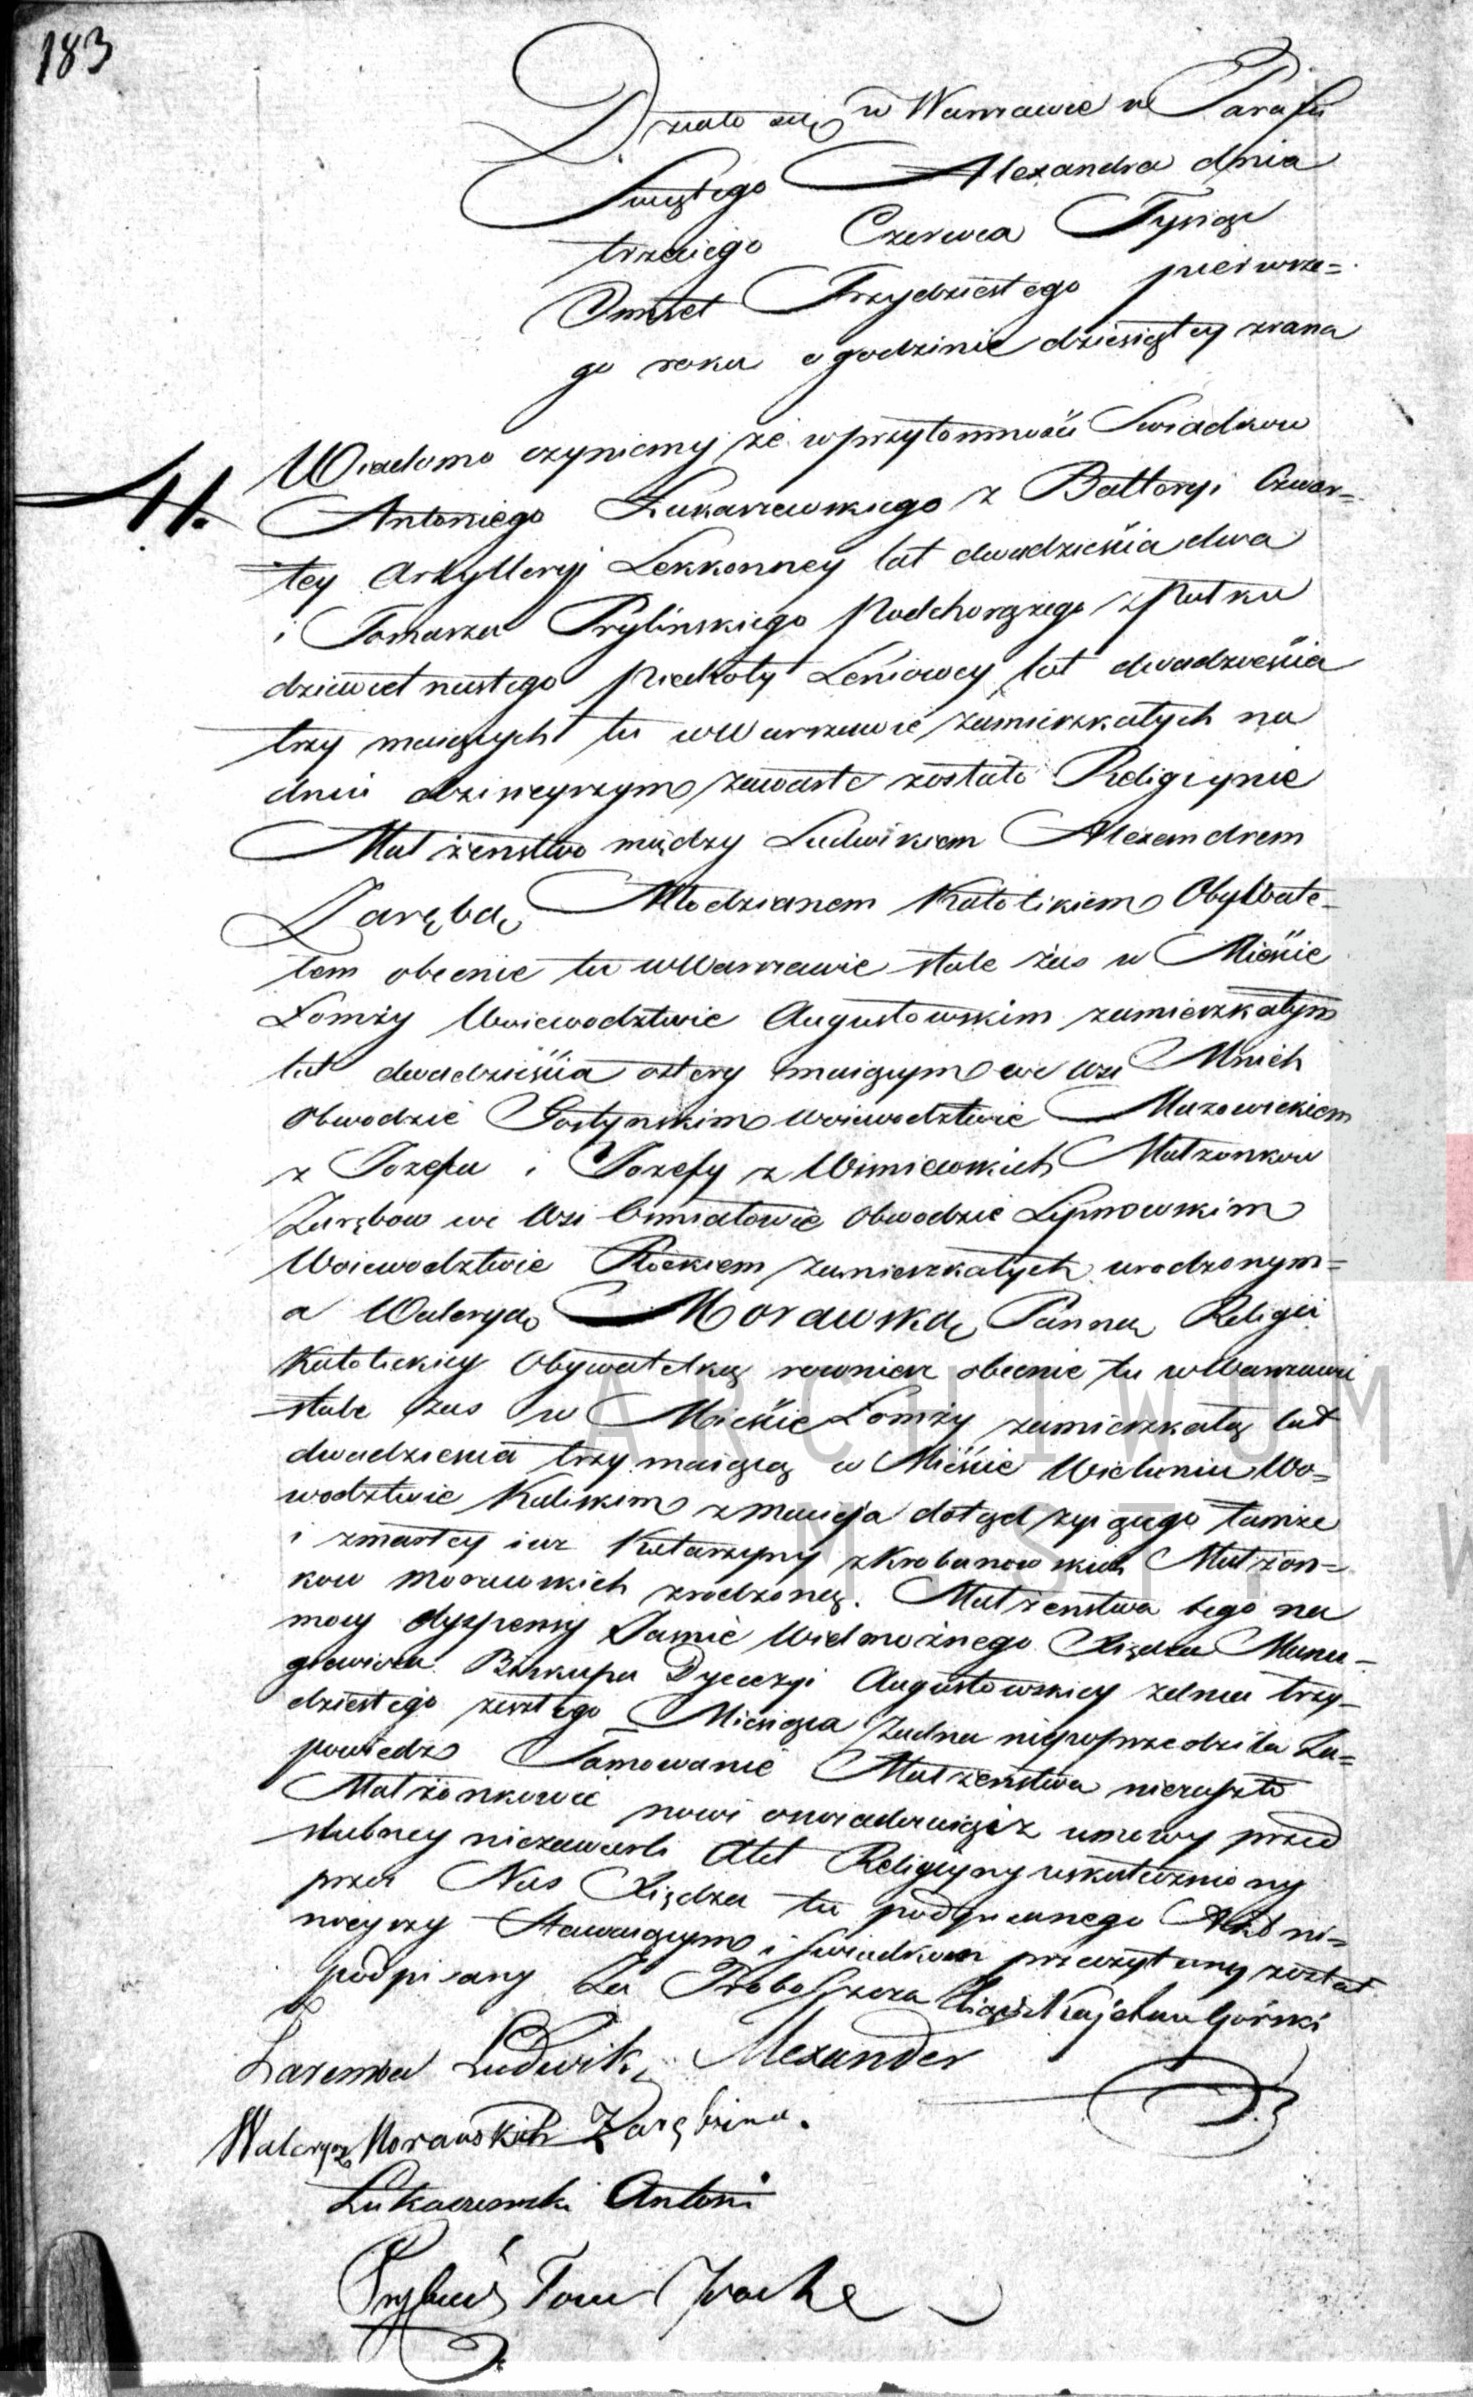 183
Działo się w Warszawie w Parafii
Swiętego Alexandra dnia
trzeciego Czerwca Tysiąc
Ośmset Trzydziestego pierwsze=
go roku o godzinie dziesiątey zrana
41.
Wiadomo czyniemy że w przytomności Swiadkow
Antoniego Łukaszewskiego z Batteryi Czwar=
tey Artylleryi Lekkonney lat dwadzieścia dwa
i Tomasza Prylińskiego Podchorążego z Pułku
dziewietnastego Piechoty Liniowey lat dwadzieścia
trzy maiących tu w Warszawie zamieszkałych na
dniu dzisieyszym zawarte zostało Religiynie
Małżenstwo między Ludwikiem Alexandrem
Zarębą Młodzianem Katolikiem Obywate=
lem obecnie tu w Warszawie stale zas w Mieście
Łomży Woiewodztwie Augustowskim zamieszkałym
lat dwadzieścia cztery maiącym we Wsi Mnich
Obwodzie Gostynskim Woiewodztwie Mazowieckiem
z Jozefa i Jozefy z Wisniewskich Małzonkow
Zarębow we Wsi Obwodzie Lipnowskim
Woiewodztwie Płockiem zamieszkałych urodzonym=
a Waleryą Morawską Panną Religii
Katolickiey Obywatelką rownież obecnie tu w Warszawie
stale zas w Mieście Łomży zamieszkałą lat
dwadzieścia trzy maiącą w Mieście Wieluniu Wo=
wodztwie Kaliskim z Macieja dotąd żyiącego tamże
i zmarłey iuz Katarzyny z Małżon=
kow Morawskich zrodzoną. Małżenstwa tego na
mocy dyspensy Jasnie Wielmożnego Xiędza Manu=
giewicza Biskupa Dyecezyi Augustowskiey zdnia trzy=
dziestego zeszłego Miesiąca żadna niepoprzedziła Za=
powiedz Tamowanie Małżenstwa niezaszło
Małżonkowie nowi oswiadczaią iż umowy przed
slubney niezawarli Akt Religiyny uskuteczniony
przez Nas Xiędza tu podpisanego Akt ni=
nieyszy Stawaiącym i Swiadkom przeczytany został
podpisany Za Proboszcza Xiądz Kajetan Górski
Zaremba Ludwik Alexander
Walerya z Morawskich Zarębina.
Łukaszewski Antoni
ARCHIWUM